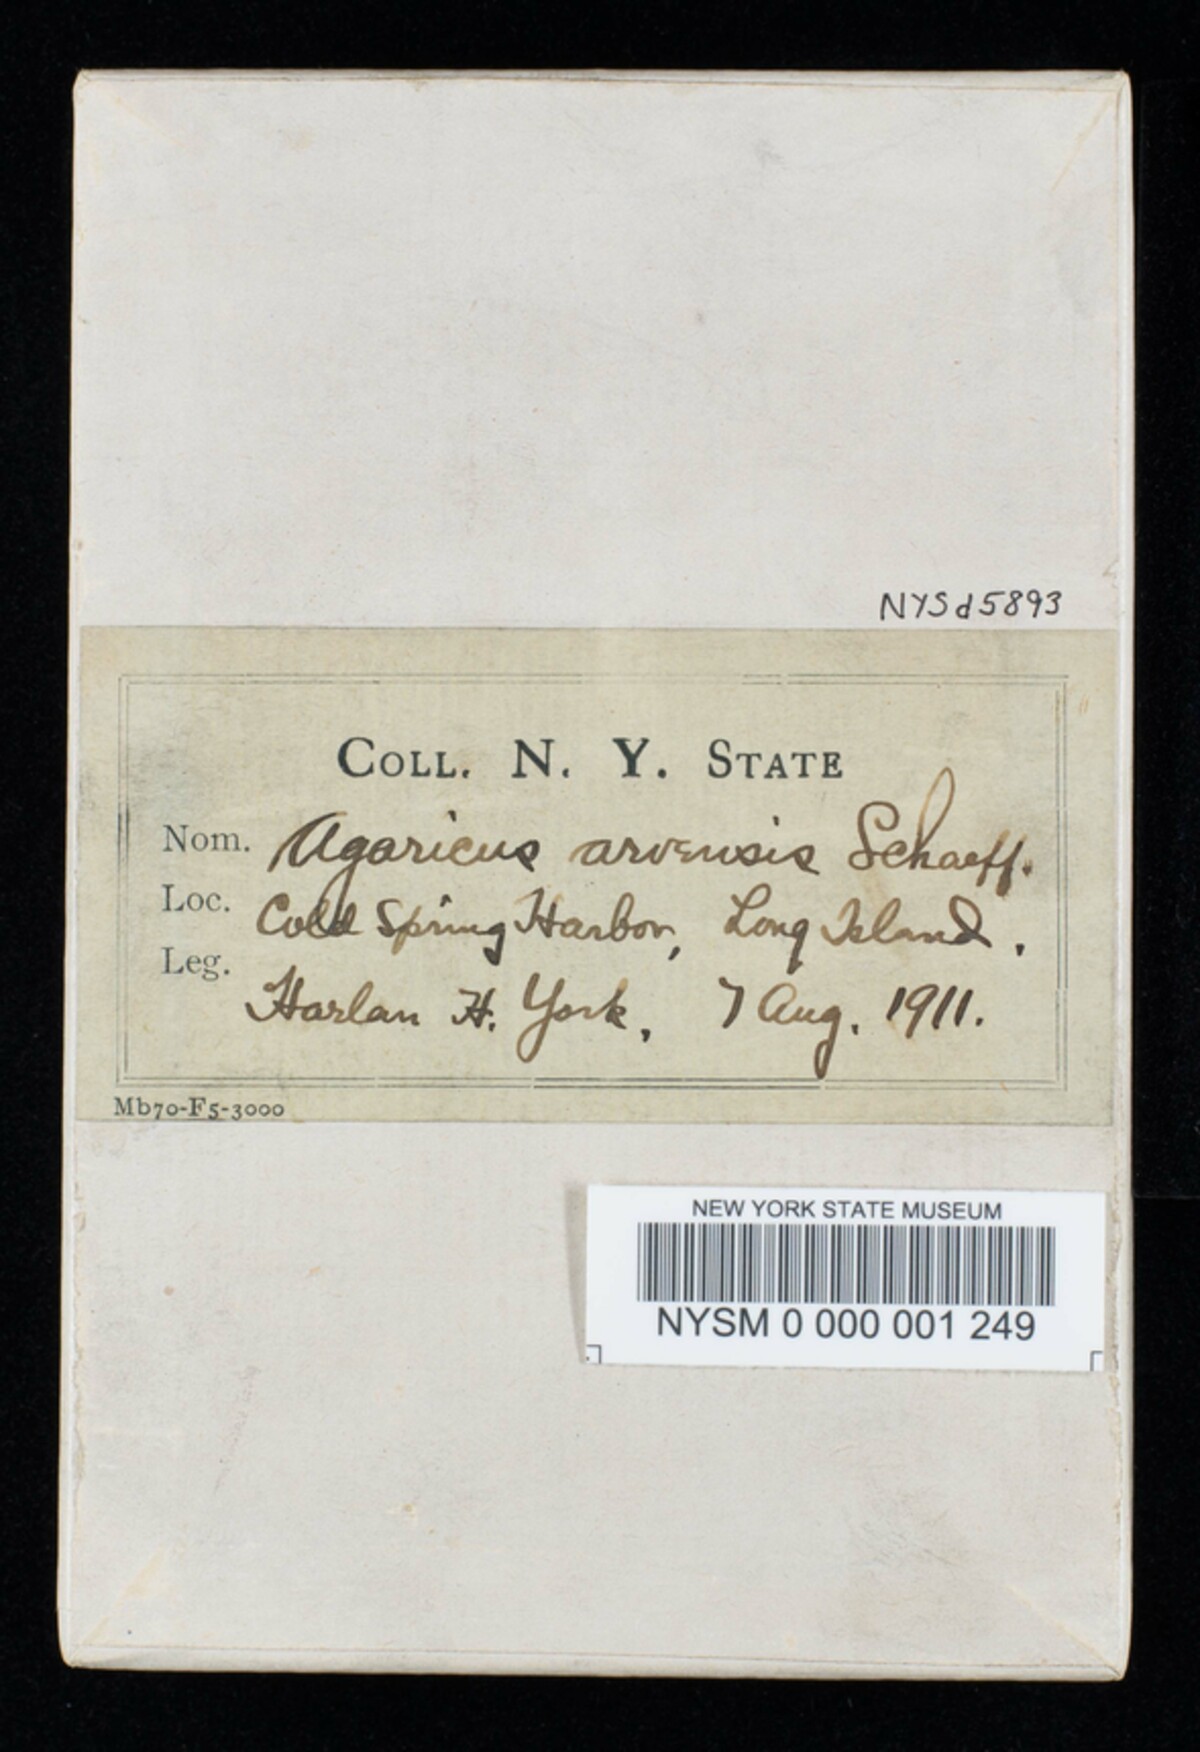 NYSd5893
COLL. N. Y. STATE
Nom. Agaricus arvensis Schaeff.
Loc. Cold Spring Harbor, Long Island.
Leg. Harlan H. York, 7 Aug. 1911.
Mb70-F5-3000
NEW YORK STATE MUSEUM
NYSM 0 000 001 249